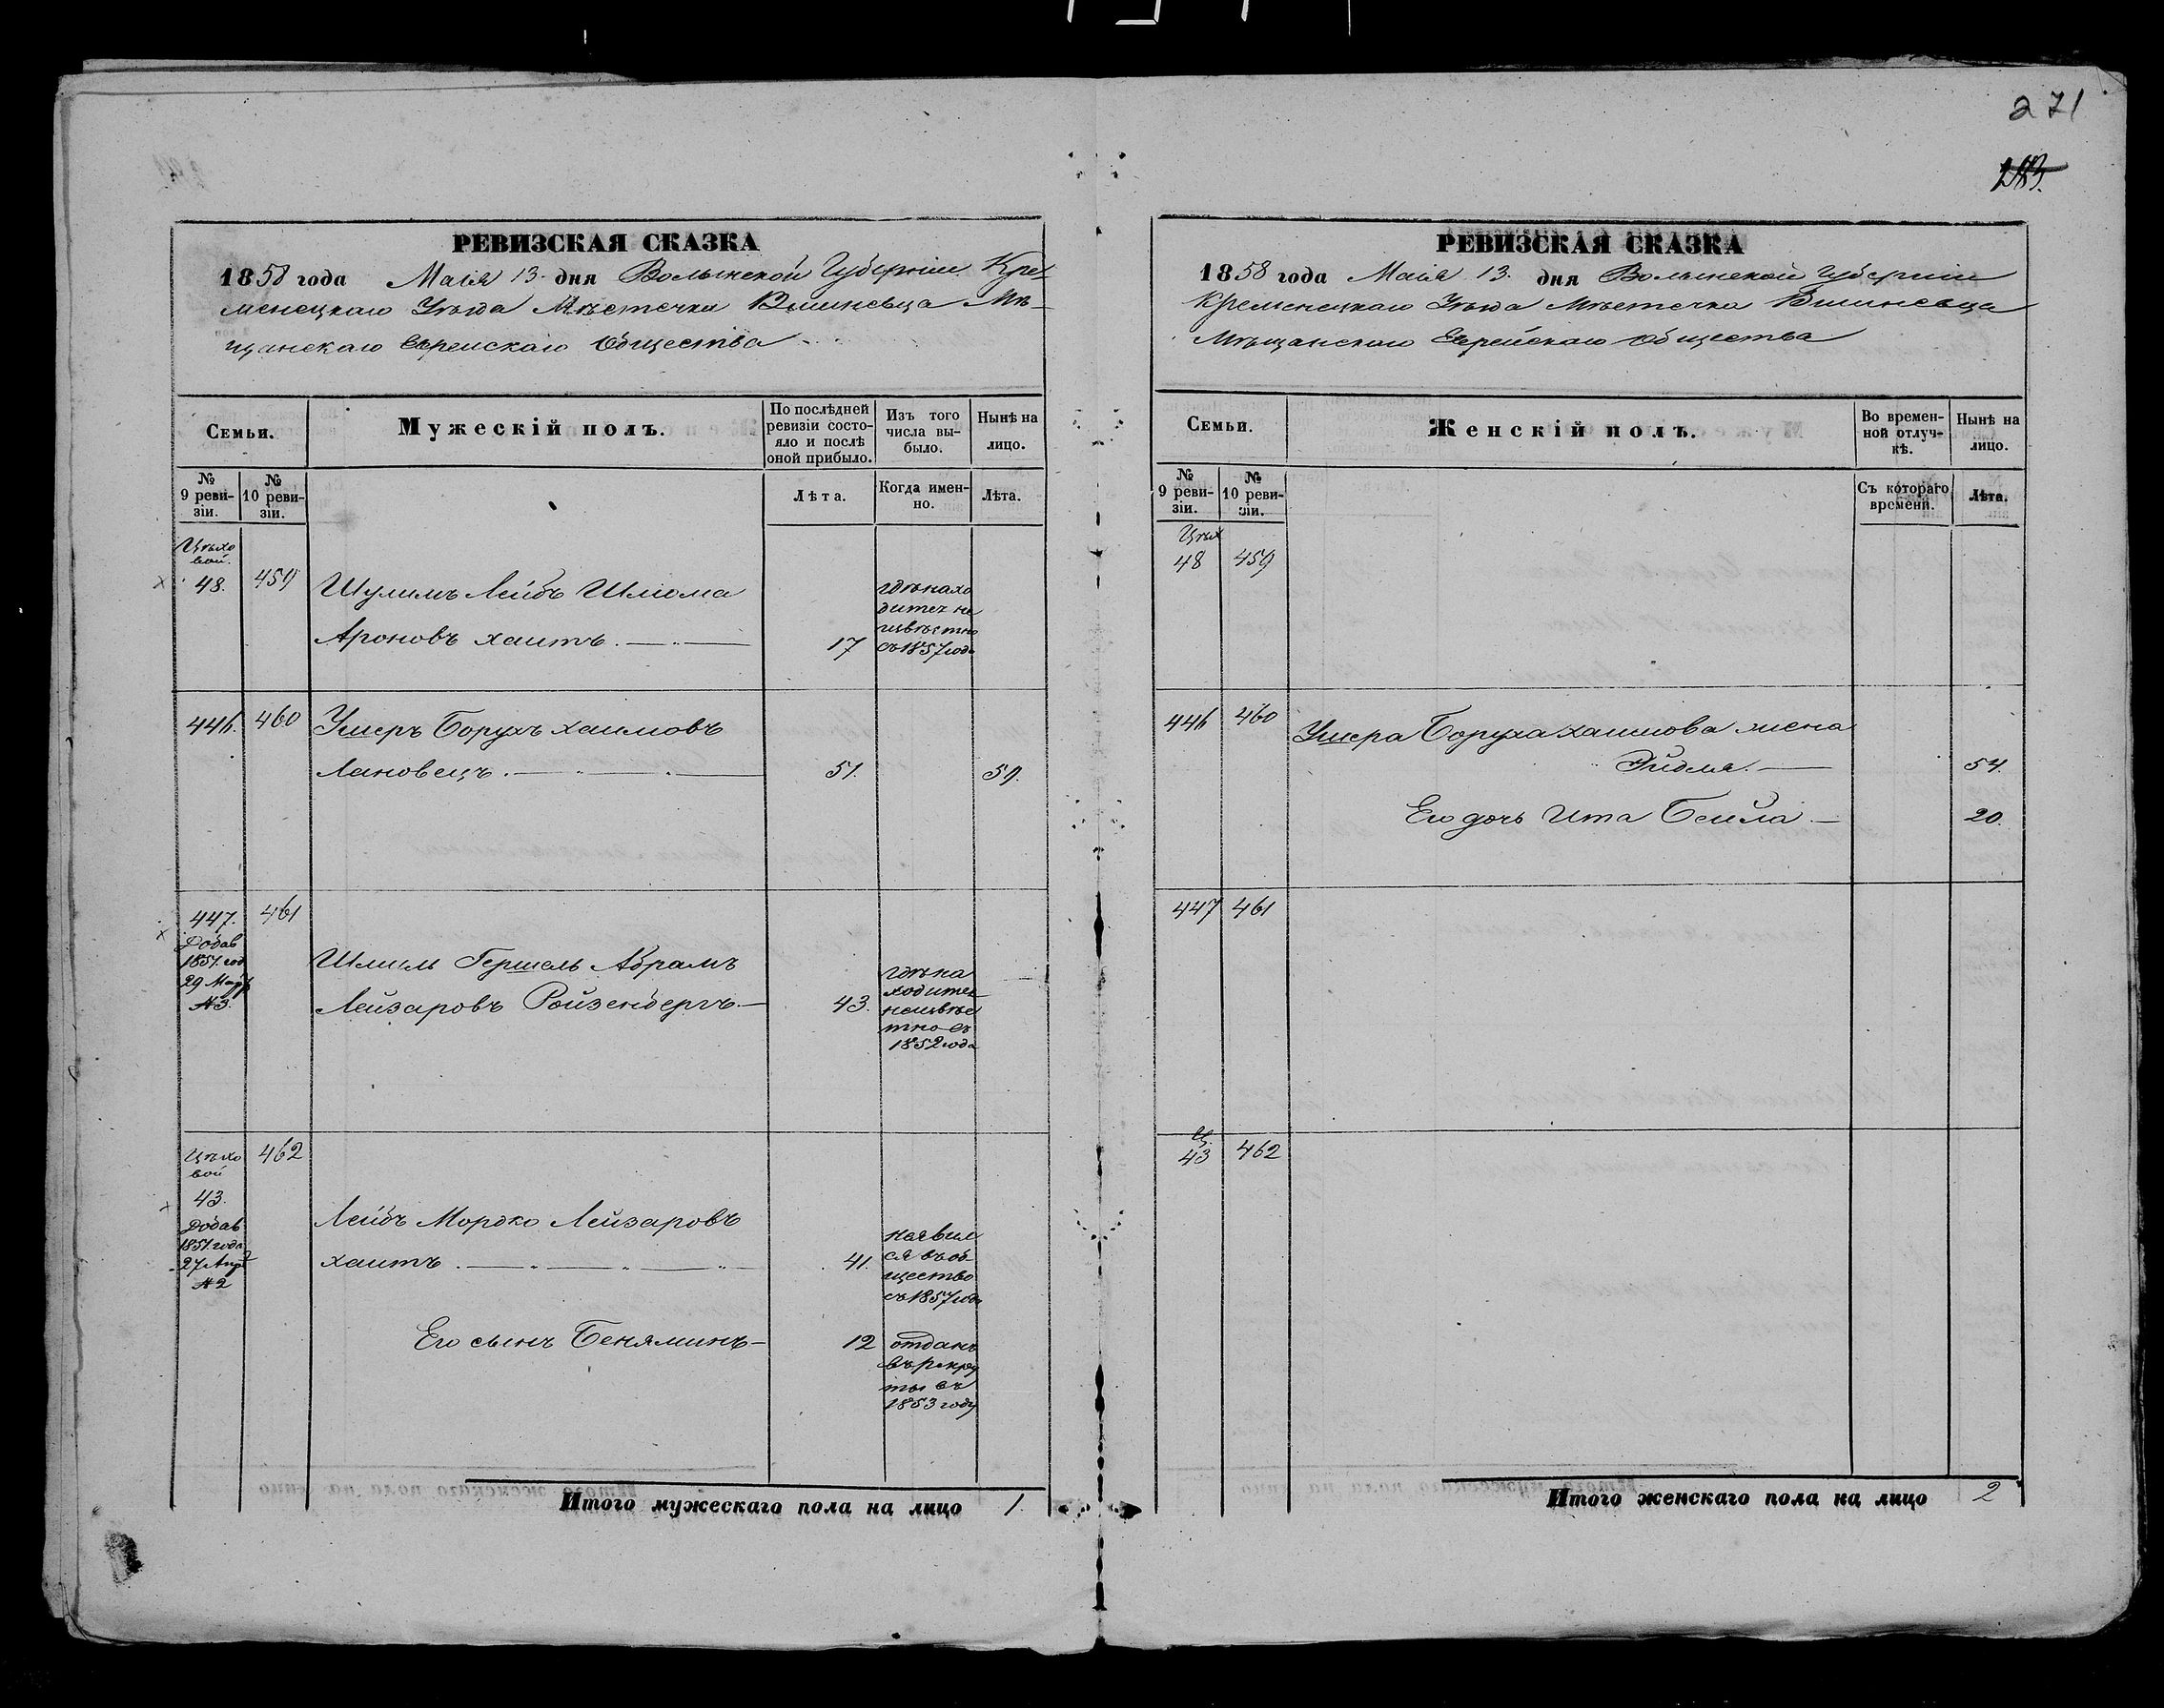 271
283.
РЕВИЗСКАЯ СКАЗКА
1858 года Маія 13. дня Волынской Губерніи Кре-
менецкаго Уѣзда Мѣстечка Вишневца Мѣ-
щанскаго Еврейскаго Общества
Семьи.
Мужескій полъ.
По послѣдней ревизіи состо-
яло и послѣ оной прибыло.
Изъ того числа вы-
было.
Нынѣ на лицо.
№ 9 реви-
зіи.
№ 10 реви-
зіи.
Лѣта.
Когда имен-
но.
Лѣта.
Цѣхо
вой.
48.
459
Шулимъ Лейбъ Шлиома
Ароновъ хаитъ.
17
гдѣ нахо
дится не
извѣстно
съ 1857 года
446.
460
Ушеръ Борухъ хаимовъ
Лановецъ.
51.
59.
447.
461
Добав
1851. год
29 Мар
№3.
Шмиль Гершель Абрамъ
Лейзаровъ Ройзенбергъ.
43.
гдѣ на
ходится
неизвѣс
тно съ
1852 года
Цѣхо
вой
462
43.
Добав
1851. года
27 Апр
№2
Лейбъ Мордко Лейзаровъ
хаитъ.
41.
неявил
ся въ об-
щество
съ 1857 года
Его сынъ Беняминъ
12
отданъ
въ рекру
ты въ
1853 году
Итого мужескаго пола на лицо 1.
РЕВИЗСКАЯ СКАЗКА
1858 года Маія 13. дня Волынской Губерніи
Кременецкаго Уѣзда Мѣстечка Вишневца
Мѣщанскаго Еврейскаго Общества
Семьи.
Женскій полъ.
Во времен-
ной отлуч-
кѣ.
Нынѣ на лицо.
№ 9 реви-
зіи.
№ 10 реви-
зіи.
Съ котораго времени.
Лѣта.
Цѣх
48 459
446 460
Ушера Боруха хаимова жена
Эйдля.
54.
Его дочь Ита Бейла
20.
447 461
Ц.
43 462
Итого женскаго пола на лицо 2